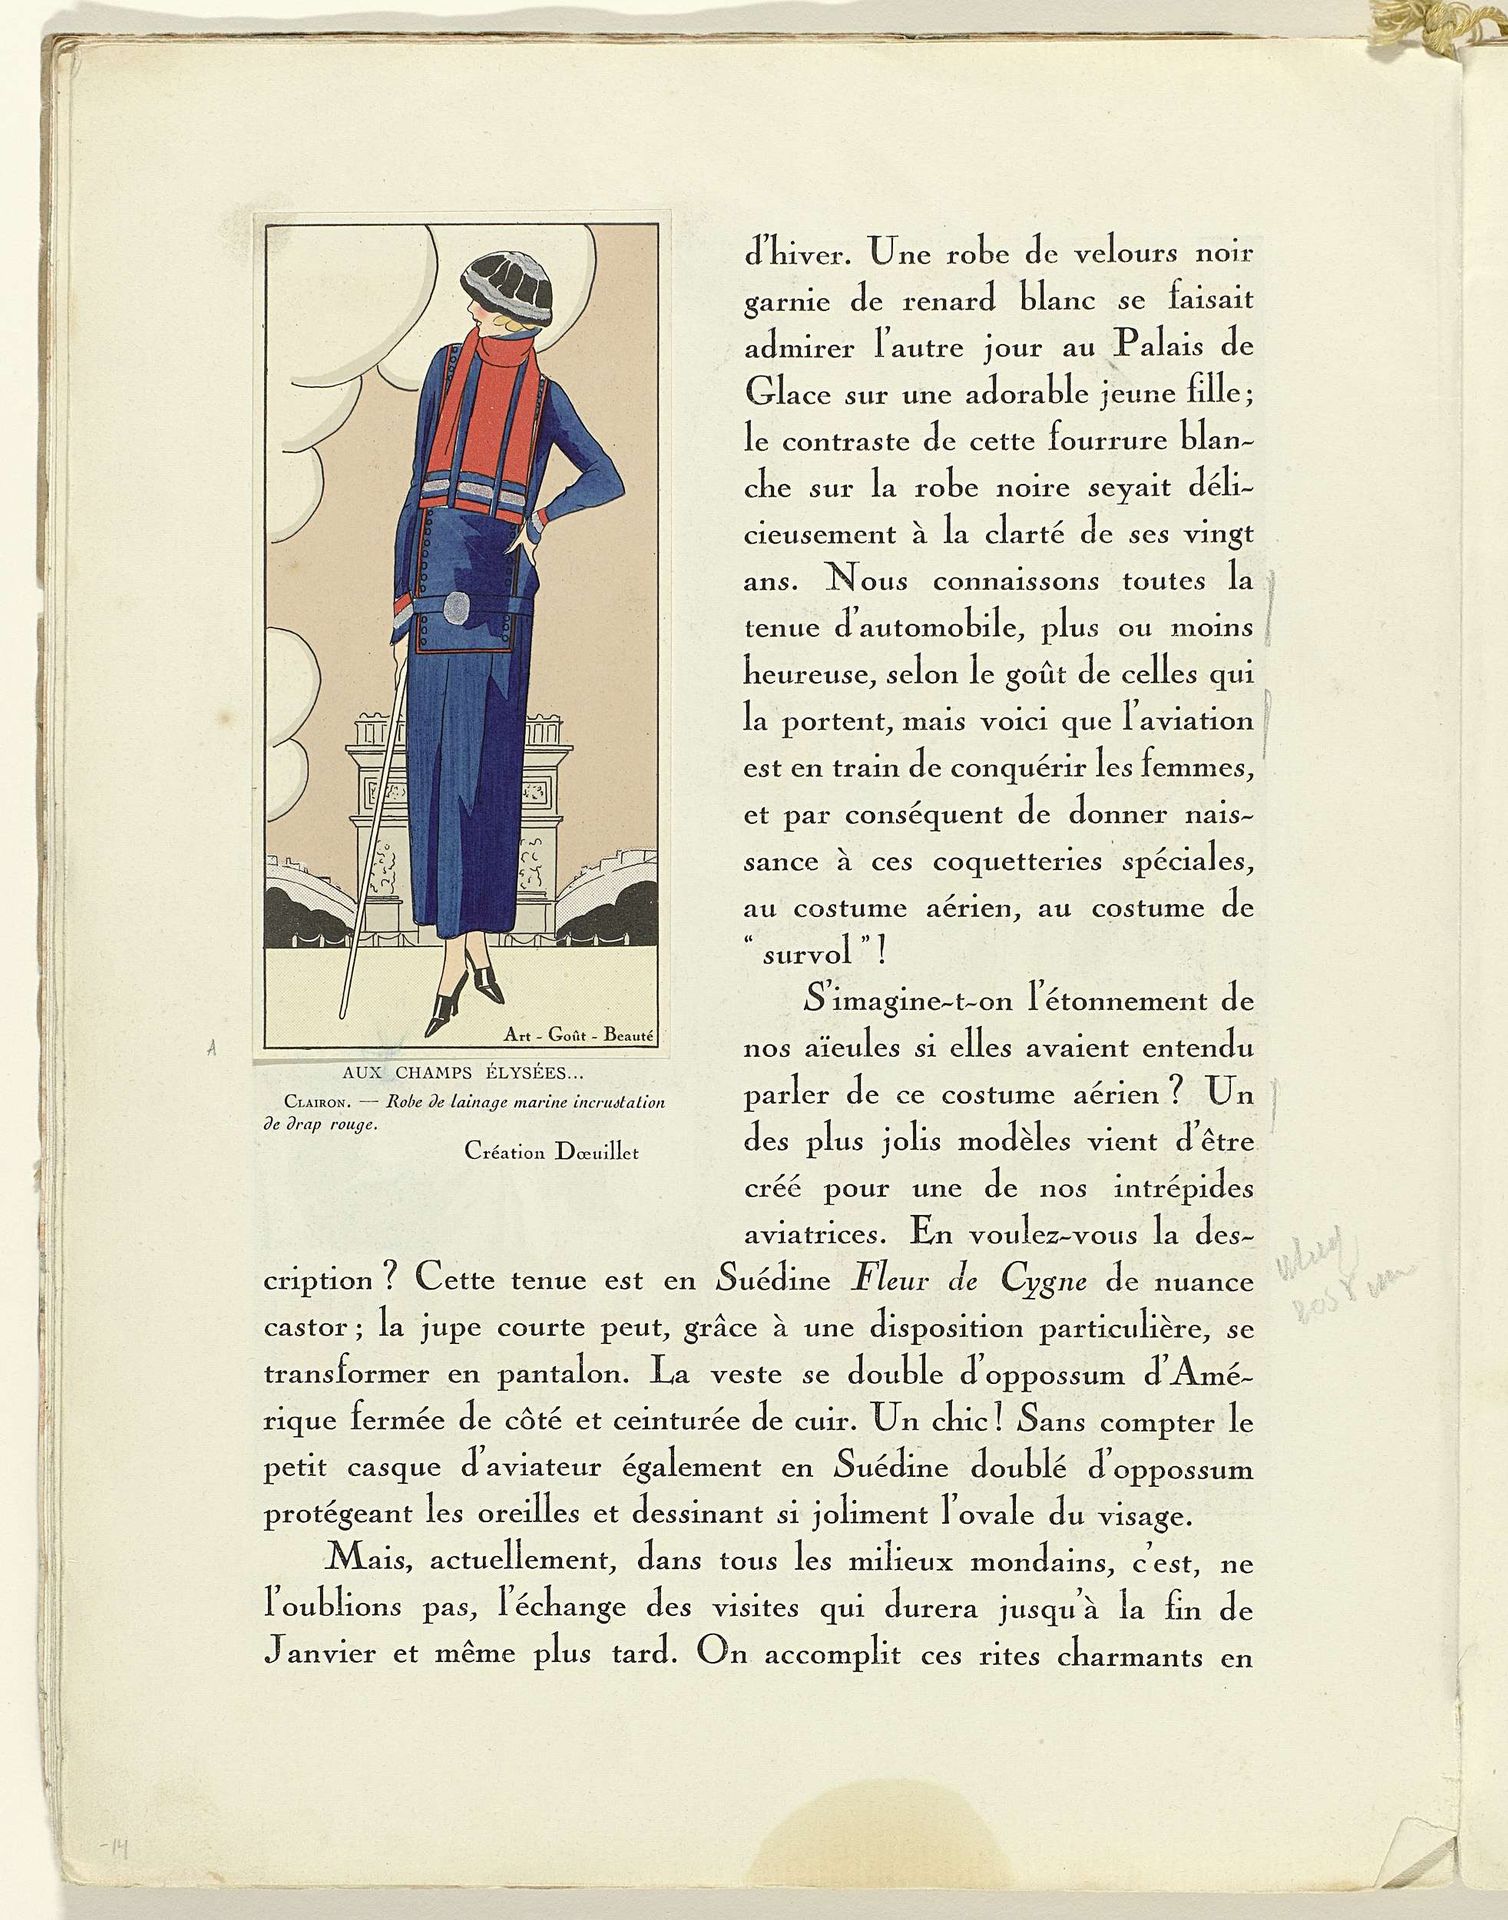 Art - Goût - Beauté
AUX CHAMPS ÉLYSÉES...
CLAIRON. — Robe de lainage marine incrustation
de drap rouge.
Création Dœuillet
d'hiver. Une robe de velours noir
garnie de renard blanc se faisait
admirer l'autre jour au Palais de
Glace sur une adorable jeune fille;
le contraste de cette fourrure blan-
che sur la robe noire seyait déli-
cieusement à la clarté de ses vingt
ans. Nous connaissons toutes la
tenue d'automobile, plus ou moins
heureuse, selon le goût de celles qui
la portent, mais voici que l'aviation
est en train de conquérir les femmes,
et par conséquent de donner nais-
sance à ces coquetteries spéciales,
au costume aérien, au costume de
“ survol ” !
S'imagine-t-on l'étonnement de
nos aïeules si elles avaient entendu
parler de ce costume aérien ? Un
des plus jolis modèles vient d'être
créé pour une de nos intrépides
aviatrices. En voulez-vous la des-
cription ? Cette tenue est en Suédine Fleur de Cygne de nuance
castor ; la jupe courte peut, grâce à une disposition particulière, se
transformer en pantalon. La veste se double d'oppossum d'Amé-
rique fermée de côté et ceinturée de cuir. Un chic ! Sans compter le
petit casque d'aviateur également en Suédine doublé d'oppossum
protégeant les oreilles et dessinant si joliment l'ovale du visage.
Mais, actuellement, dans tous les milieux mondains, c'est, ne
l'oublions pas, l'échange des visites qui durera jusqu'à la fin de
Janvier et même plus tard. On accomplit ces rites charmants en
A
-14